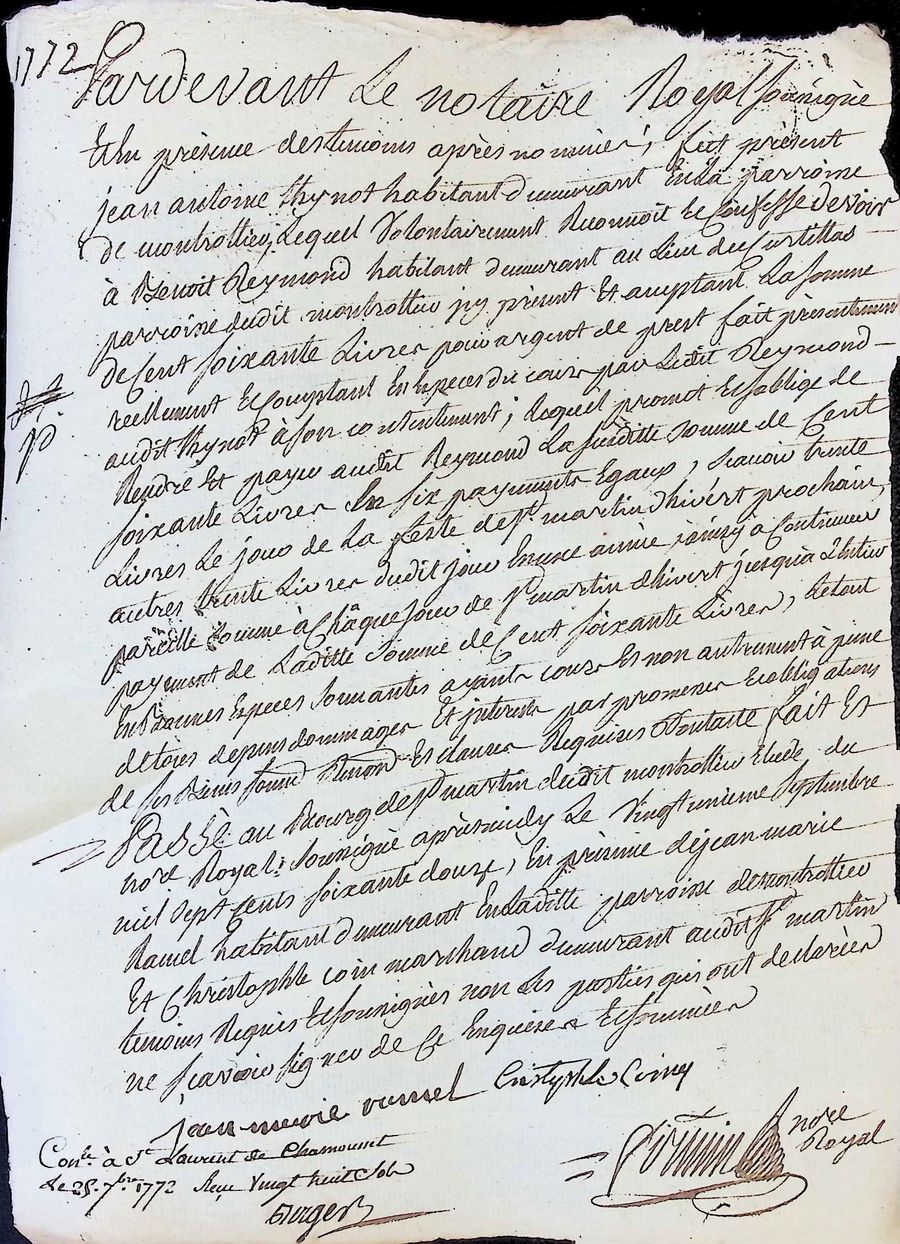 1772
Pardevant Le notaire Royal soussigné
Et En présence des temoins après nommés, fut présent
jean antoine thynot habitant demeurant En La parroisse
de montrottier, Lequel Volontairement Reconnoit Et Confesse devoir
à Benoit Reymond habitant demeurant au Lieu du Curtillas
parroisse dudit montrottier jcy présent Et acceptant La somme
de Cent soixante Livres pour argent de prest fait présentement
reellement Et Comptant En Espèces du cours par Ledit Reymond
audit thynot à son contentement ; Lequel promet Et soblige de
Rendre Et payer audit Reymond La susditte somme de Cent
soixante Livres En six payments Egaux, scavoir trente
Livres Le jour de La feste de st. martin d'hivert prochain,
autres trente Livres dudit jour En une année, & ainsy à Continuer
pareille somme à Châque jour de st martin dhivert jusquà Lentier
payement de Laditte somme de Cent soixante Livres, Le tout
En Bonnes Especes sonnantes ayants cours Et non autrement à peine
de tous depens dommages Et jnterets par promesses Et obligations
de ses Biens soumis Renon. Et clauses Requises Dont acte fait Et
Passé au Bourg de st martin dudit montrottier Etude du
nore. Royal. soussigné après midy Le Vingt unieme Septembre
mil sept Cents soixante douze, En présence de jean marie
Ramel habitant demeurant En Laditte parroisse de montrottier
Et Christophle coin marchand demeurant audit st martin
temoins Requis Et soussignés non Les parties qui ont declarées
ne scavoir signer de Ce Enquises & Et sommées
jean-marie ramel Cristophle Coing
nore
Royal
Conle. à St. Laurent de Chamousset
Le 25. 7bre 1772 Reçu Vingt huit sols